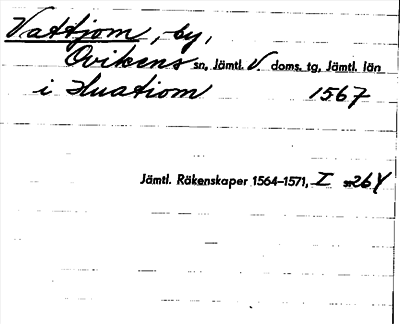 Vattjom, by,
Ovikens sn, Jämtl. V. doms. tg, Jämtl. län
i Huatiom 1567
Jämtl. Räkenskaper 1564–1571, I s. 264